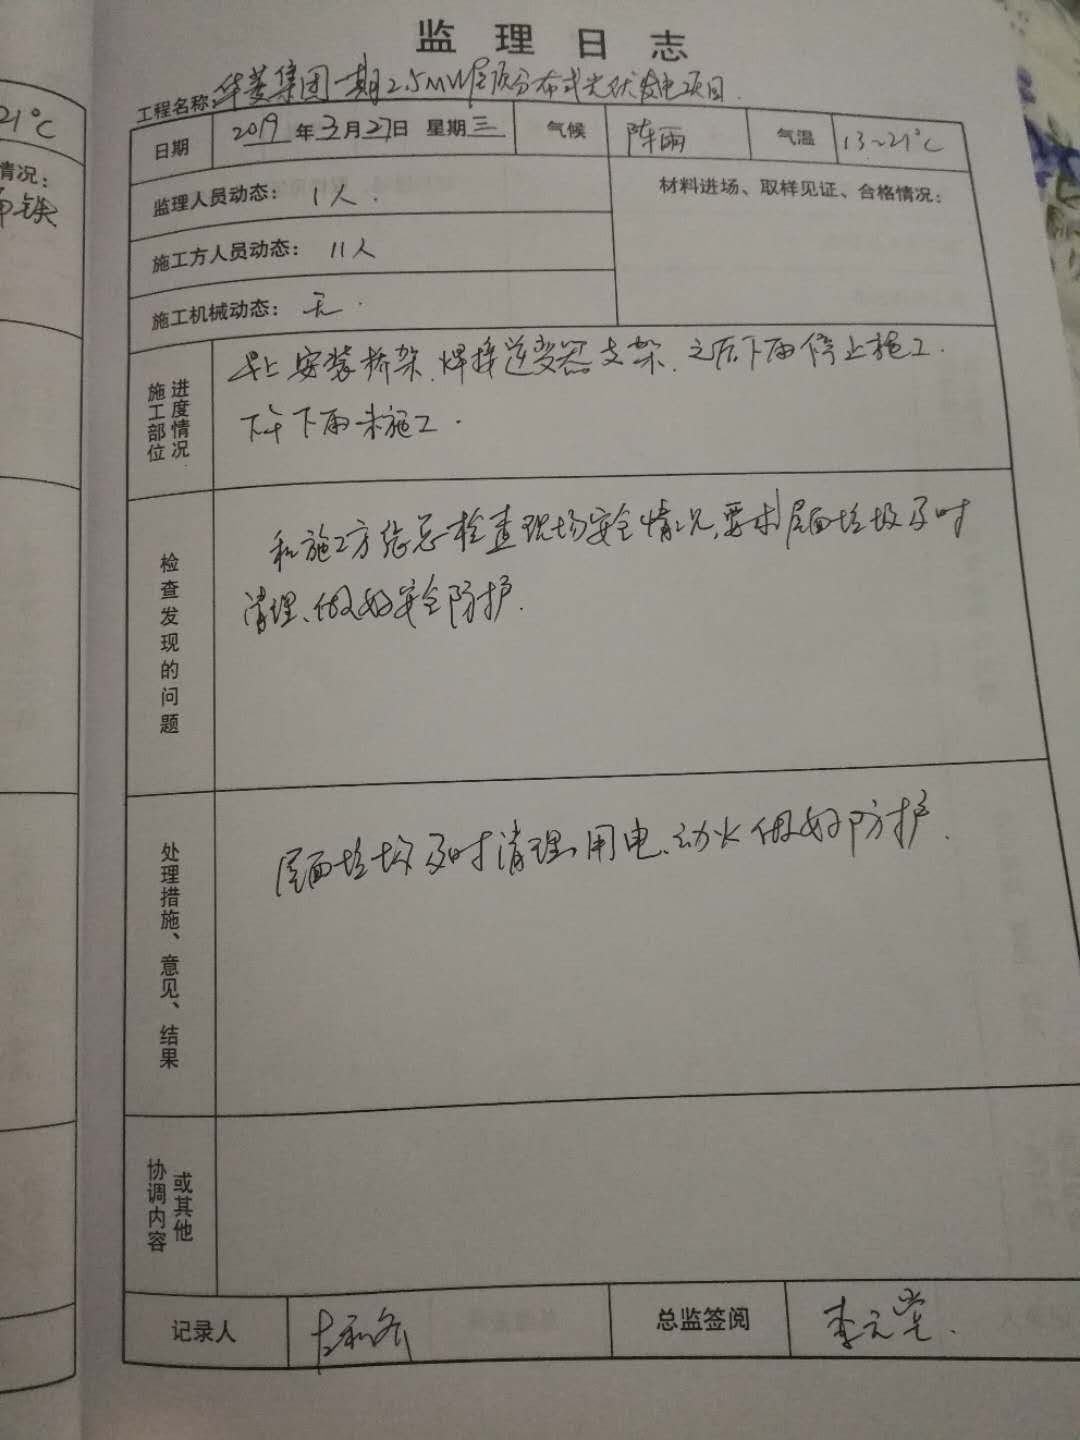 监理日志
工程名称:华菱集团一期2.5MW屋顶分布式光伏发电项目.
日期 2019年3月27日 星期三 气候 阵雨 气温 13~21℃
监理人员动态: 1人.
材料进场、取样见证、合格情况:
施工方人员动态: 11人
施工机械动态: 无.
施工部位 进度情况
早上安装桥架、焊接逆变器支架、之后下雨停止施工.
下午下雨未施工.
检查发现的问题
和施工方张总一检查现场安全情况,要求屋面垃圾及时
清理、做好安全防护.
处理措施、意见、结果
屋面垃圾及时清理、用电、动火做好防护.
协调内容 或其他
记录人
总监签阅 李元
21℃
情况: